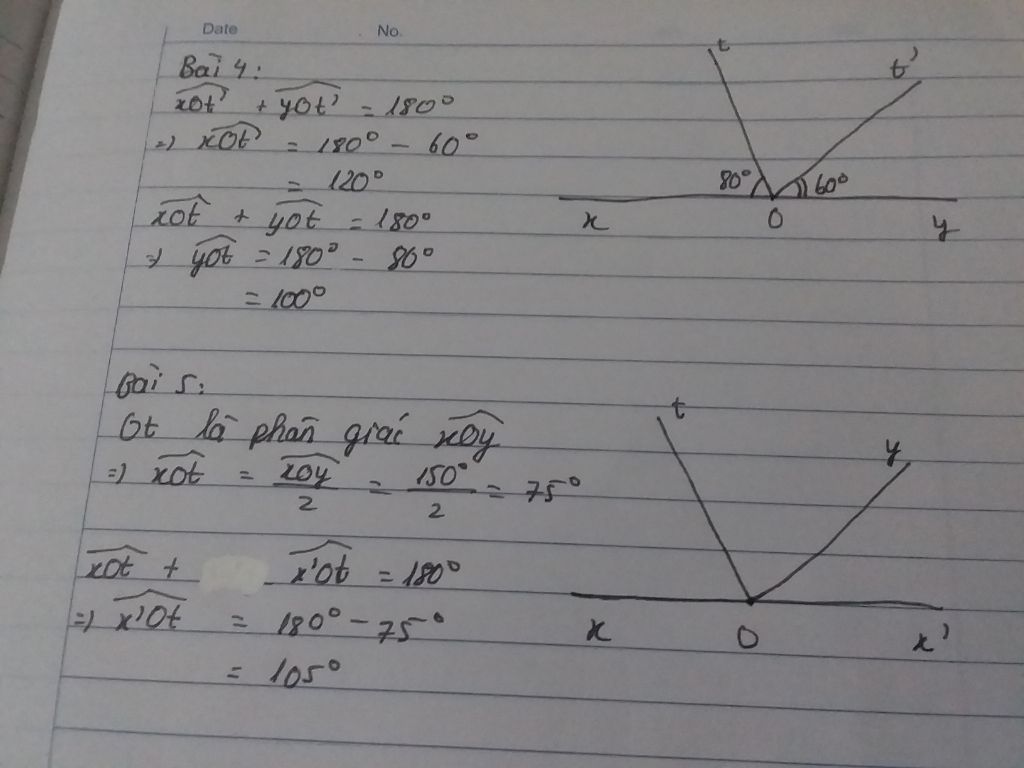 Date No.
Bài 4:
xOt' + yOt' = 180°
=> xOt' = 180° - 60°
= 120°
xOt + yOt = 180°
=> yOt = 180° - 80°
= 100°
t
t'
80°
60°
x
O
y
Bài 5:
Ot là phân giác xOy
=> xOt = xOy/2 = 150°/2 = 75°
xOt + x'Ot = 180°
=> x'Ot = 180° - 75°
= 105°
t
y
x
O
x'